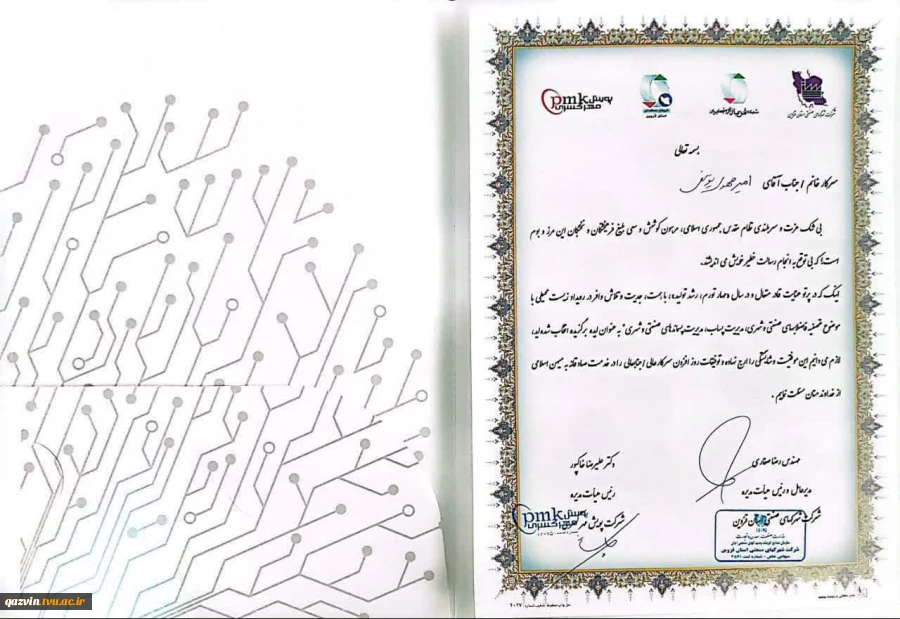 pmk پویش مهر گستری
شرکت شهرکهای صنعتی استان قزوین
بسمه تعالی
سرکار خانم / جناب آقای امیر مهدی یوسفی
بی شک عزت و سربلندی نظام مقدس جمهوری اسلامی، مرهون کوشش و سعی بلیغ فرهیختگان و نخبگان این مرز و بوم
است که بی توقع به انجام رسالت خطیر خویش می اندیشند.
اینک که در پرتو عنایت قادر متعال و در سال «مهار تورم، رشد تولید»، با همت، جدیت و تلاش وافر در رویداد زیست محیطی با
موضوع تصفیه فاضلابهای صنعتی و شهری، مدیریت پساب، مدیریت پسماندهای صنعتی و شهری" به عنوان ایده برگزیده انتخاب شده اید،
لازم می دانیم این موفقیت و شایستگی را ارج نهاده و توفیقات روز افزون سرکار عالی / جنابعالی را در خدمت صادقانه به میهن اسلامی
از خداوند منان مسئلت نماییم.
مهندس رضا صفاری
دکتر علیرضا خاکپور
مدیرعامل و رئیس هیأت مدیره
رئیس هیأت مدیره
شرکت شهرکهای صنعتی استان قزوین
شرکت پویش مهر
pmk پویش مهر گستری
شرکت شهرکهای صنعتی استان قزوین
qazvin.tvu.ac.ir